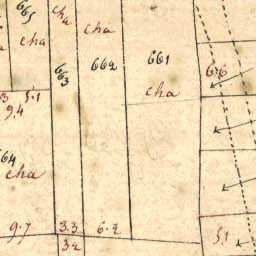 665
cha
cha
cha
663
662
661
6.6
cha
5.1
9.4
64
cha
9.7
3.3
6.2
32
5.1